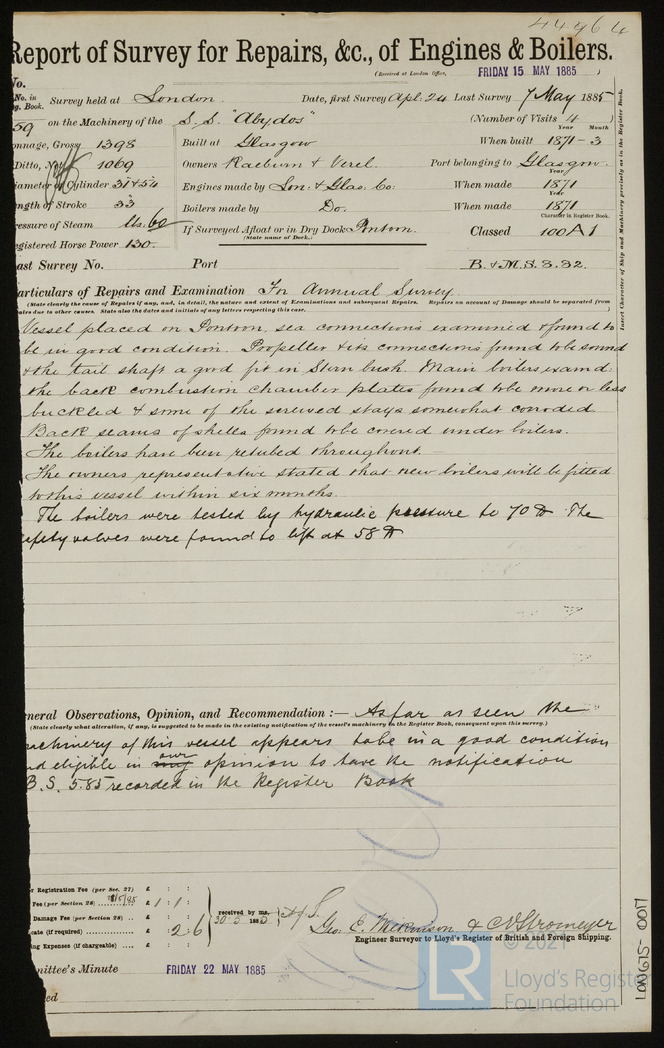 44964
Report of Survey for Repairs, &c., of Engines & Boilers.
(Received at London Office, FRIDAY 15 MAY 1885 )
No.
No. in
Survey held at London. Date, first Survey Apl. 24 Last Survey 7 May 1885
Book.
59 on the Machinery of the S.S. "Abydos" (Number of Visits 4
Year Month
onnage, Gross 1398 Built at Glasgow When built 1871 - 3
Ditto, Net 1069 Owners Raeburn & Verel. Port belonging to Glasgow.
Year
iameter of Cylinder 31 & 54 Engines made by Lon: & Glas. Co: When made 1871
Year
ngth of Stroke 33 Boilers made by Do. When made 1871
Character in Register Book.
ressure of Steam lbs. 60 If Surveyed Afloat or in Dry Dock Pontoon. Classed 100 A 1
(State name of Dock.)
egistered Horse Power 130.
ast Survey No. Port B. & M. S. 3. 82.
Insert Character of Ship and Machinery precisely as in the Register Book.
articulars of Repairs and Examination For Annual Survey.
(State clearly the cause of Repairs if any, and, in detail, the nature and extent of Examinations and subsequent Repairs. Repairs on account of Damage should be separated from
airs due to other causes. State also the dates and initials of any letters respecting this case. )
Vessel placed on Pontoon, sea connections examined & found to
be in good condition. Propeller & its connections found to be sound
& the tail shaft a good fit in Stern bush. Main boilers examd:
the back combustion chamber plates found to be more or less
buckled & some of the screwed stays somewhat corroded.
Back seams of shells found to be covered under boilers.
The boilers have been retubed throughout.
The owners representative stated that new boilers will be fitted
to this vessel within six months.
The boilers were tested by hydraulic pressure to 70 lb. The
afety valves were found to lift at 58 lb
neral Observations, Opinion, and Recommendation :— As far as seen the
(State clearly what alteration, if any, is suggested to be made in the existing notification of the vessel's machinery in the Register Book, consequent upon this survey.)
achinery of this vessel appears to be in a good condition
our
nd eligible in my opinion to have the notification
B. S. 5.85 recorded in the Register Book
r Registration Fee (per Sec. 27) £ : :
Fee (per Section 28) £ 1 : 1 :
Damage Fee (per Section 28) £ : :
cate (if required) £ : 2 : 6
ing Expenses (if chargeable) £ : :
received by me,
Geo. E. Wilkinson & C. E. Stromeyer
Engineer Surveyor to Lloyd's Register of British and Foreign Shipping.
mittee's Minute FRIDAY 22 MAY 1885
ed
© 2021
LR
Lloyd's Register
Foundation
LON675-0017